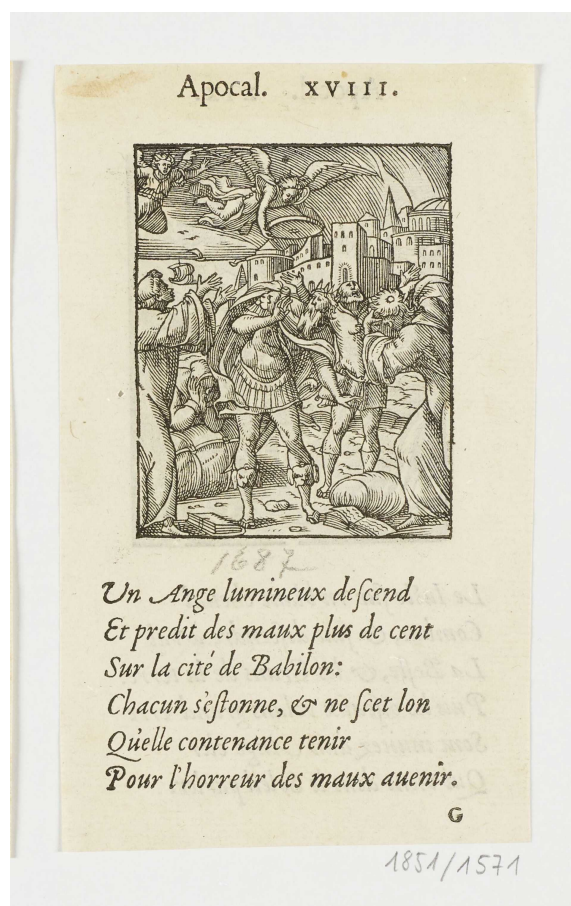 Apocal. XVIII.
1687
Un Ange lumineux deſcend
Et predit des maux plus de cent
Sur la cité de Babilon:
Chacun s'eſtonne, & ne ſcet lon
Qu'elle contenance tenir
Pour l'horreur des maux auenir.
G
1851/1571